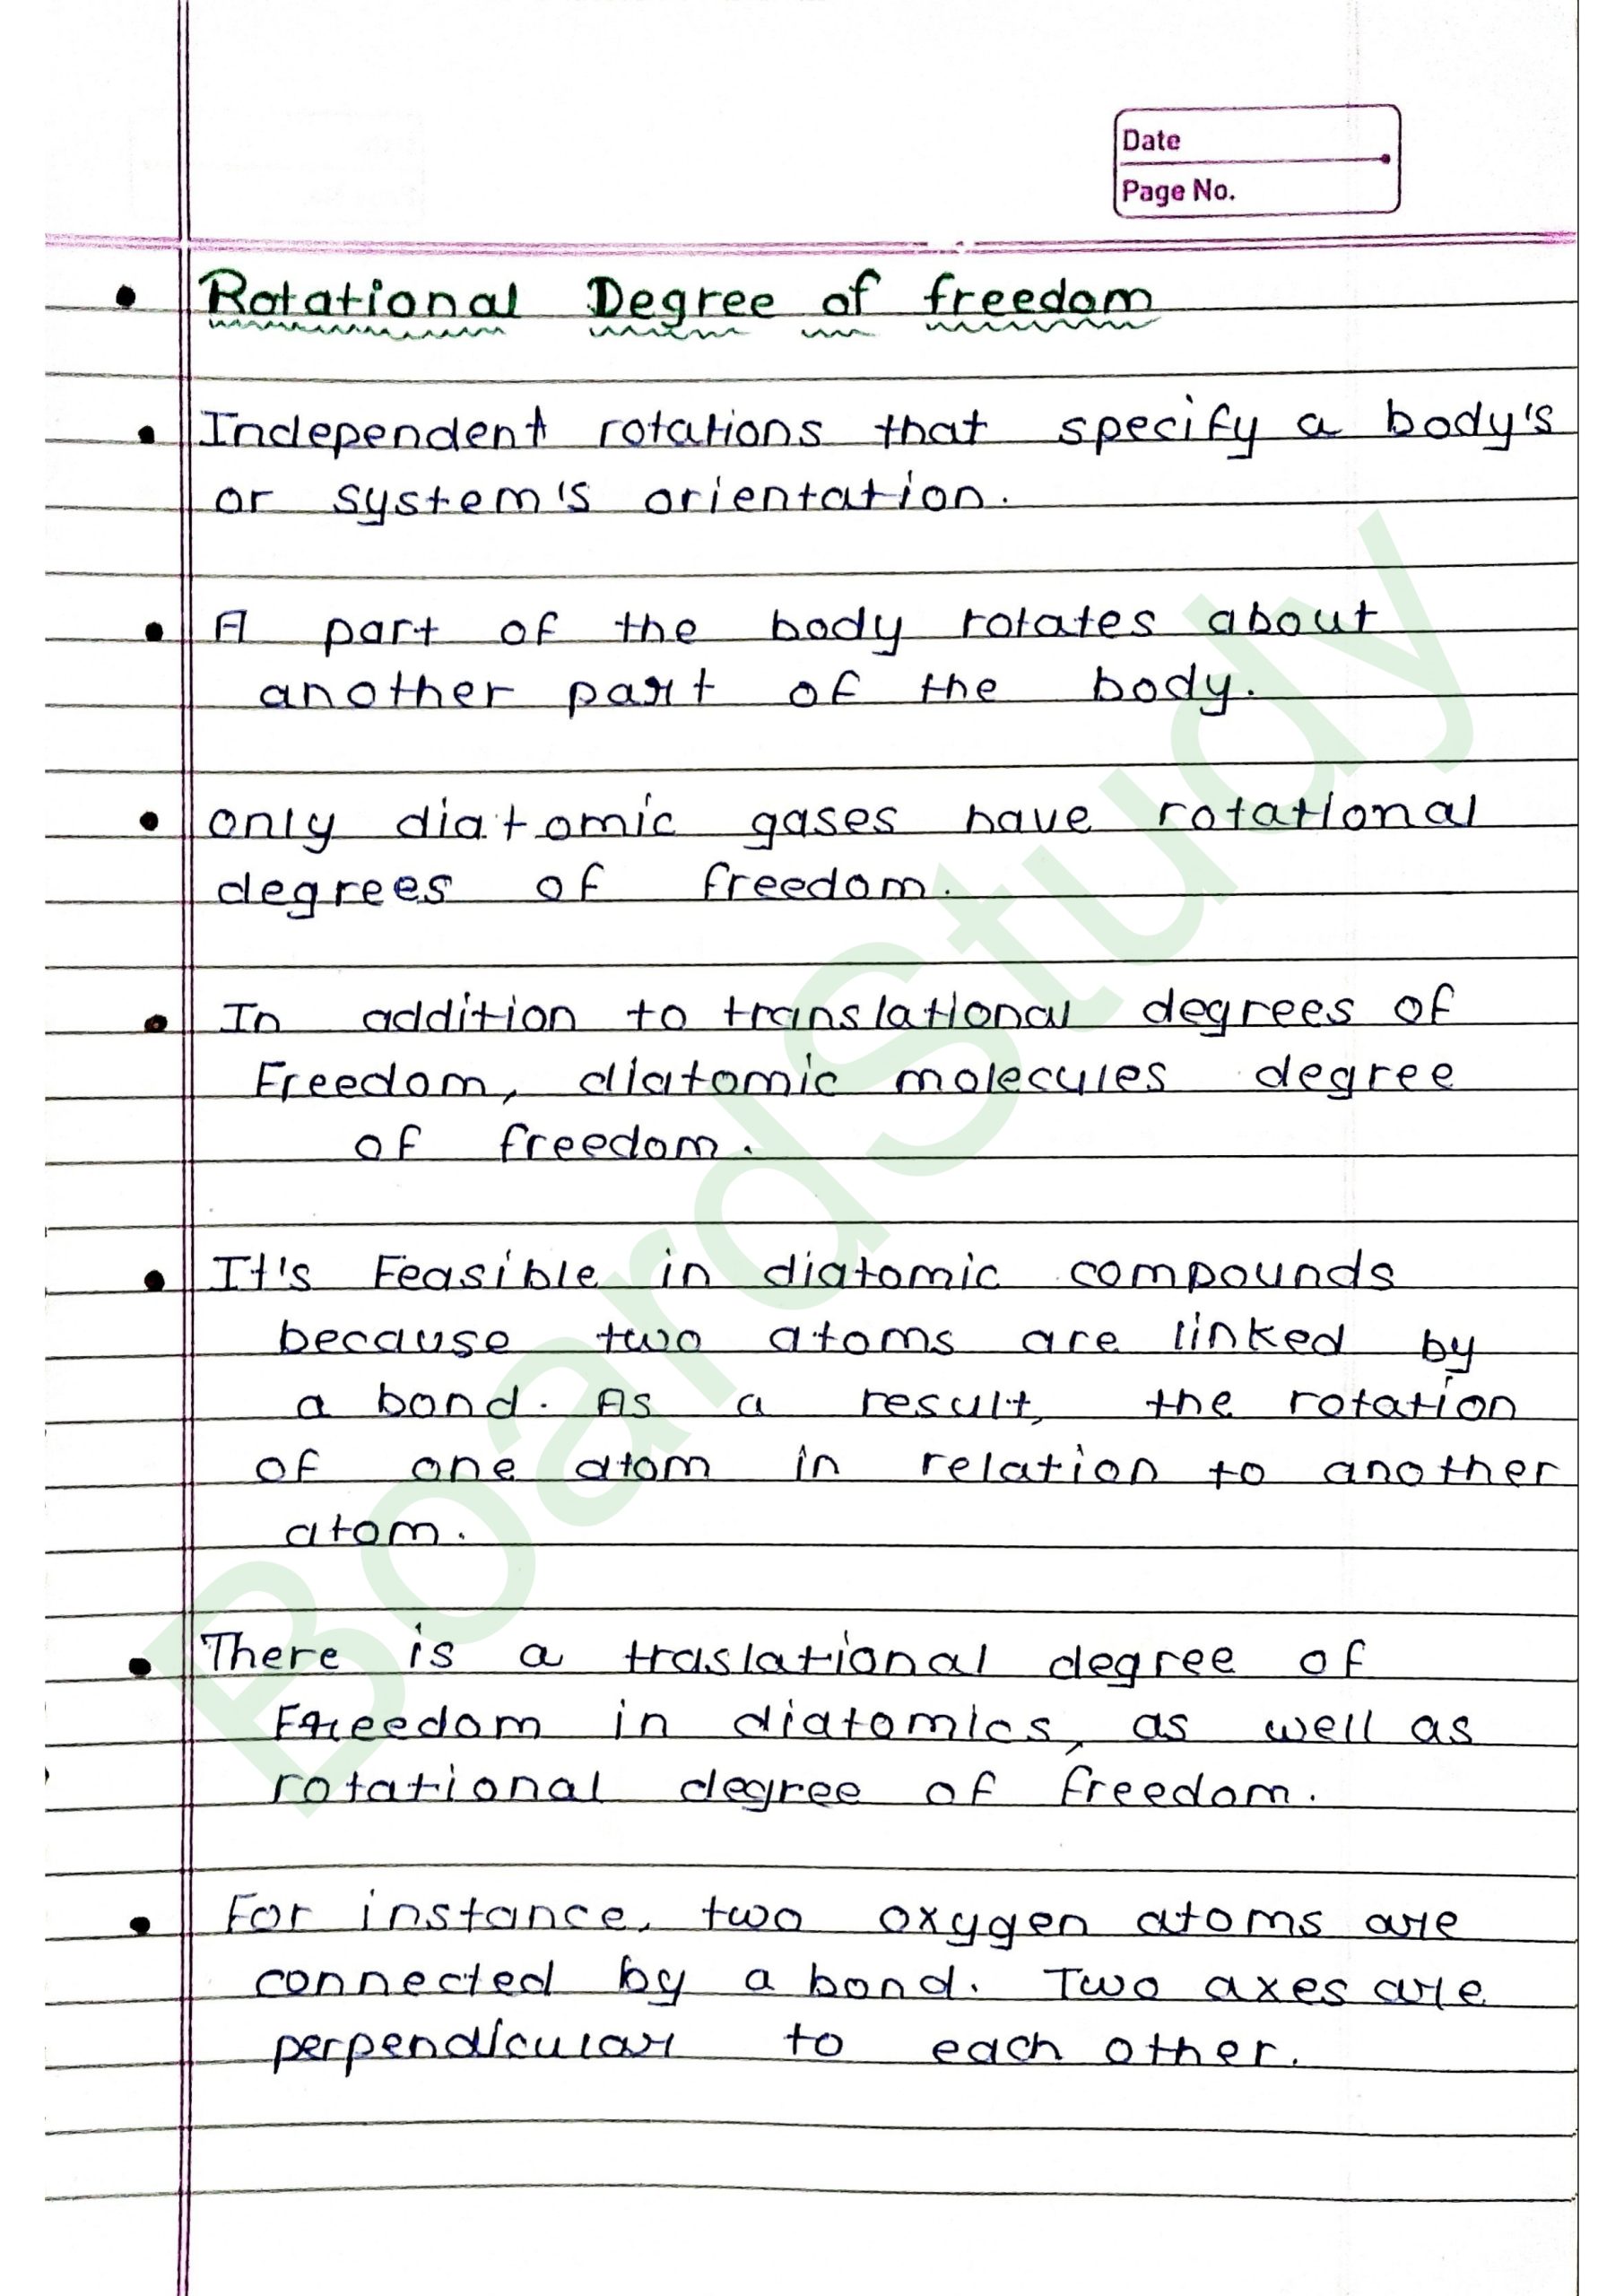 Date
Page No.
• Rotational Degree of freedom
• Independent rotations that specify a body's
or system's orientation.
• A part of the body rotates about
another part of the body.
• only diatomic gases have rotational
degrees of freedom.
• In addition to translational degrees of
Freedom, diatomic molecules degree
of freedom.
• It's Feasible in diatomic compounds
because two atoms are linked by
a bond. As a result, the rotation
of one atom in relation to another
atom.
• There is a traslational degree of
Freedom in diatomics, as well as
rotational degree of freedom.
• For instance, two oxygen atoms are
connected by a bond. Two axes are
perpendicular to each other.
BoardStudy